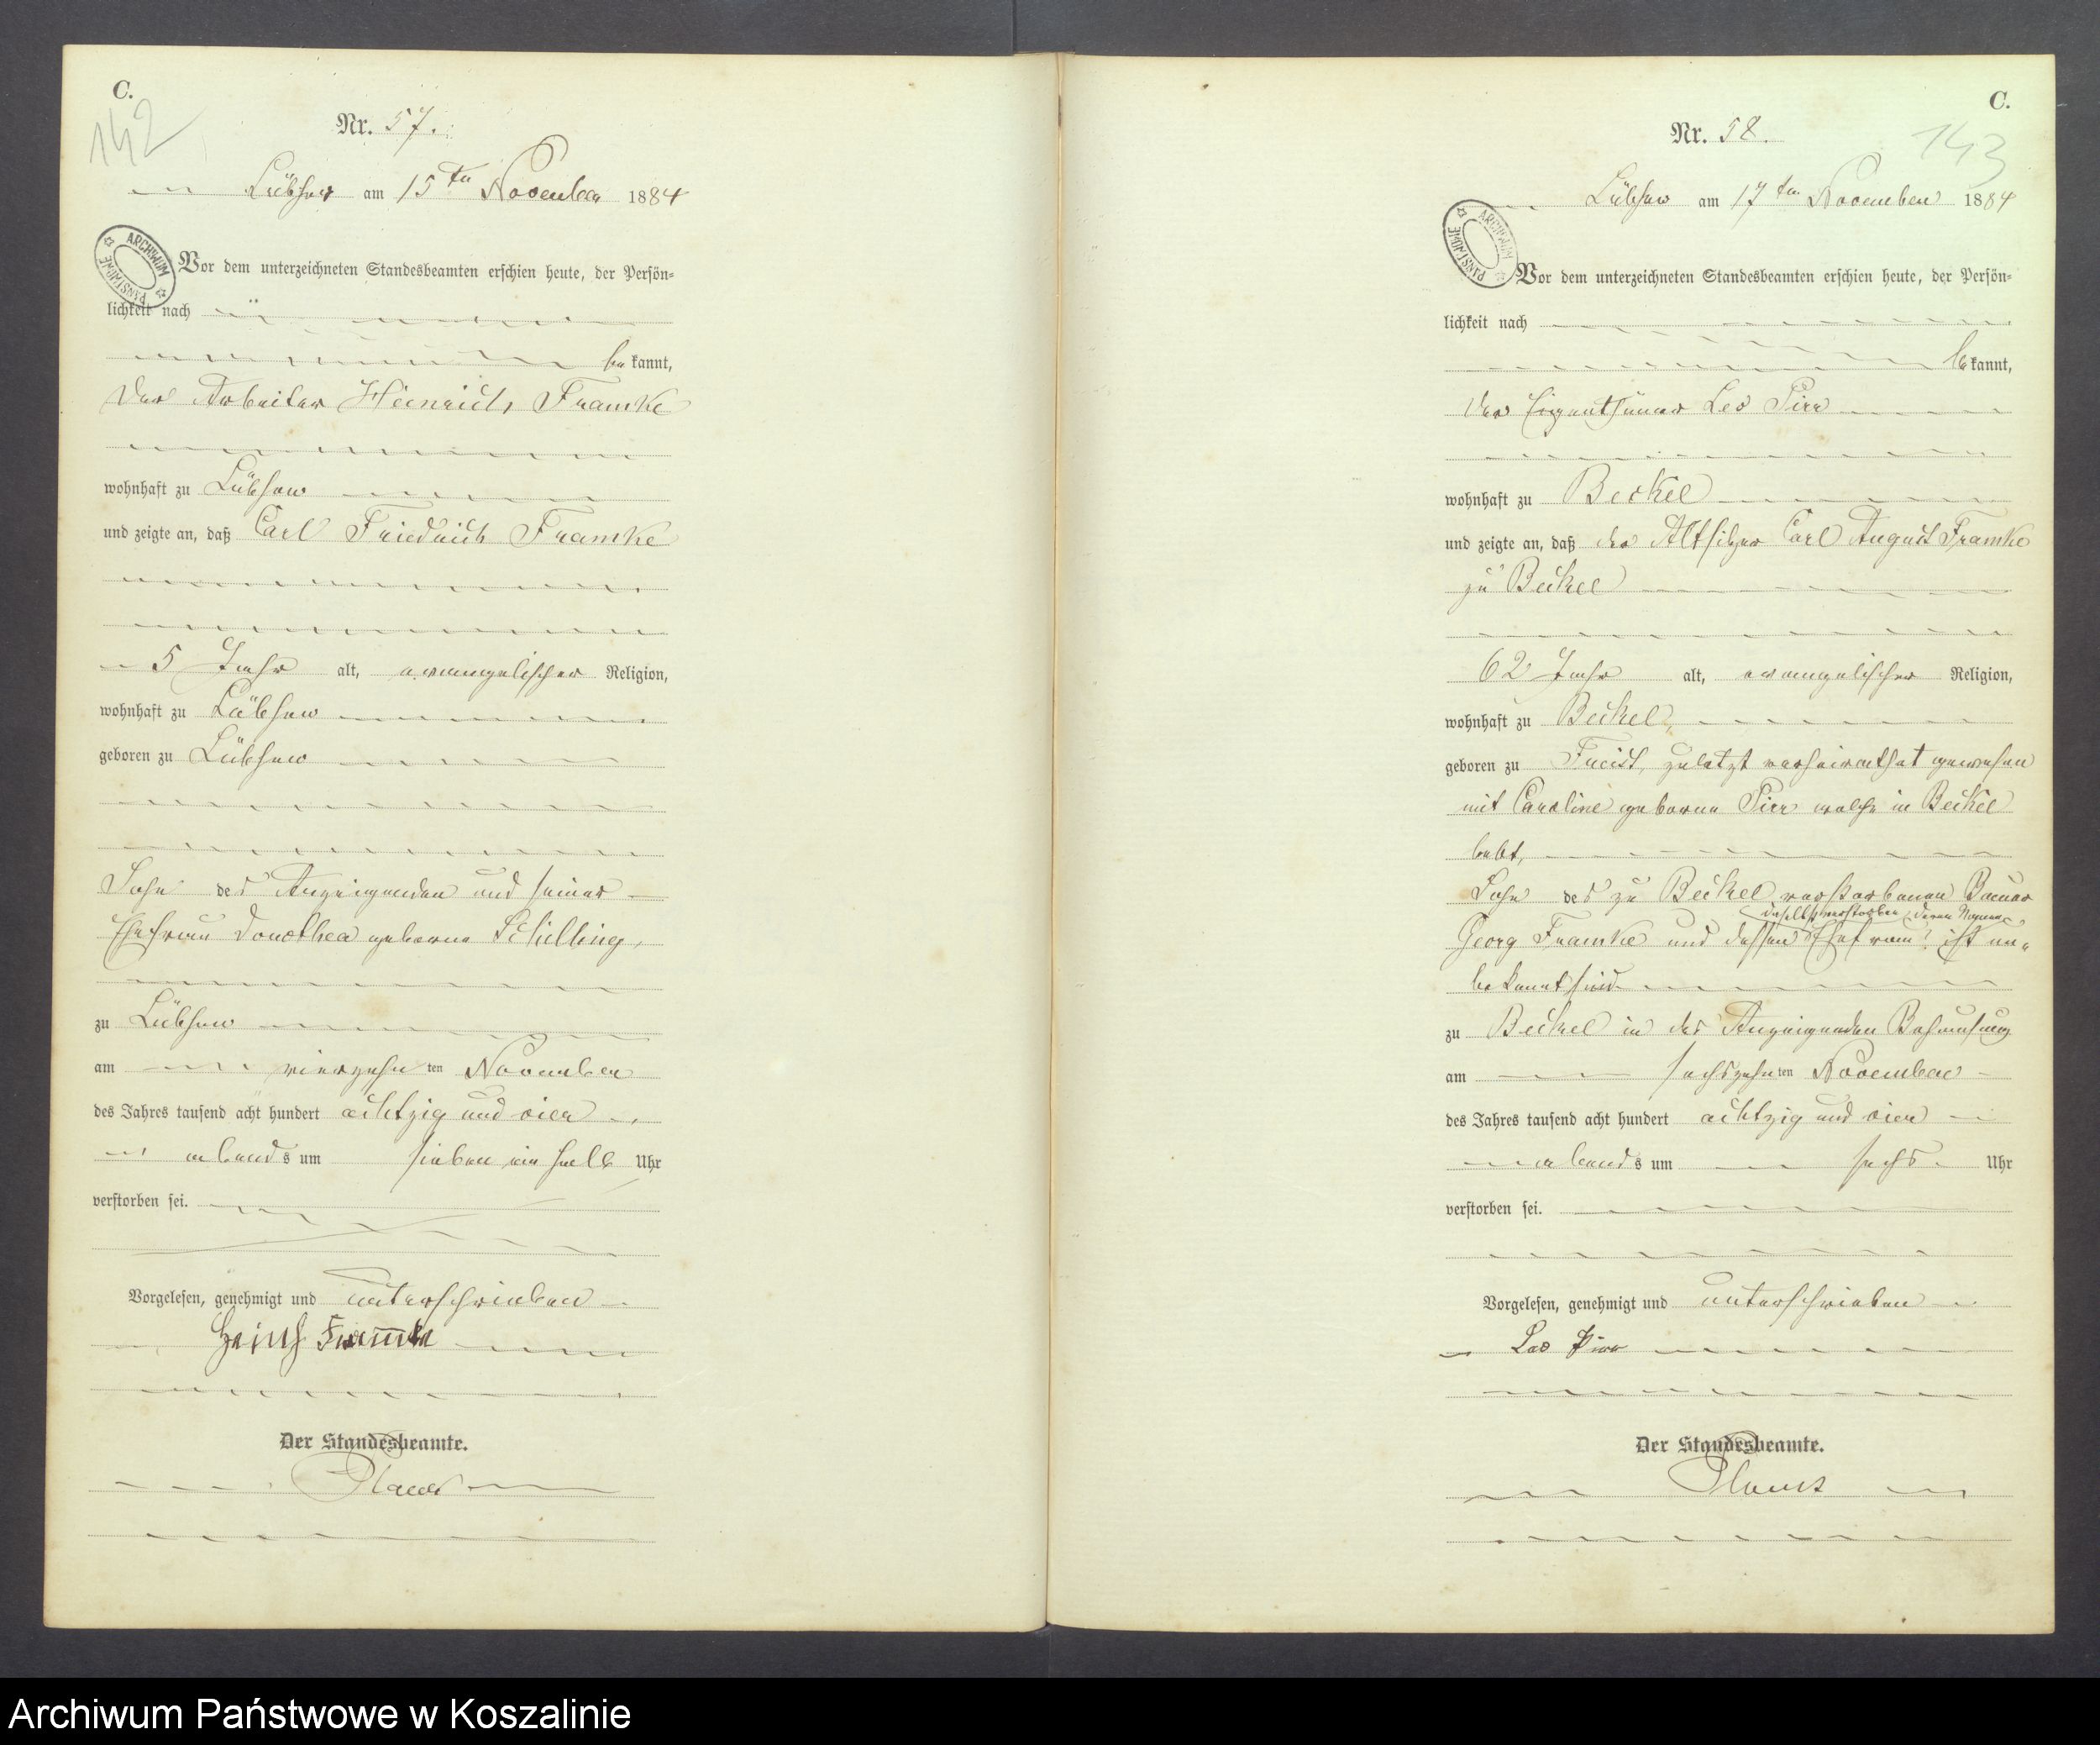 C.
142
Nr. 57.
Lübsow am 15ten November 1884
ARCHIWUM PAŃSTWOWE
Vor dem unterzeichneten Standesbeamten erschien heute, der Persön-
lichkeit nach
bekannt,
der Arbeiter Heinrich Framke
wohnhaft zu Lübsow
und zeigte an, daß Carl Friedrich Framke
5 Jahr alt, evangelischer Religion,
wohnhaft zu Lübsow
geboren zu Lübsow
Sohn des Anzeigenden und seiner
Ehefrau Dorothea geborne Schilling,
zu Lübsow
am vierzehnten November
des Jahres tausend acht hundert achtzig und vier
abends um sieben ein halb Uhr
verstorben sei.
Vorgelesen, genehmigt und unterschrieben
Heinrich Framke
Der Standesbeamte.
C.
143
Nr. 58.
Lübsow am 17ten November 1884
ARCHIWUM PAŃSTWOWE
Vor dem unterzeichneten Standesbeamten erschien heute, der Persön-
lichkeit nach
bekannt,
der Eigenthümer Leo Pirr
wohnhaft zu Beckel
und zeigte an, daß der Altsitzer Carl August Framke
zu Beckel
62 Jahr alt, evangelischer Religion,
wohnhaft zu Beckel
geboren zu Freist, zuletzt verheirathet gewesen
mit Caroline geborne Pirr welche in Beckel
lebt,
Sohn des zu Beckel verstorbenen Bauer
daselbst verstorben deren Namen
Georg Framke und dessen Ehefrau ist un-
bekannt sind
zu Beckel in des Anzeigenden Behausung
am sechszehnten November
des Jahres tausend acht hundert achtzig und vier
abends um sechs Uhr
verstorben sei.
Vorgelesen, genehmigt und unterschrieben
Leo Pirr
Der Standesbeamte.
Archiwum Państwowe w Koszalinie